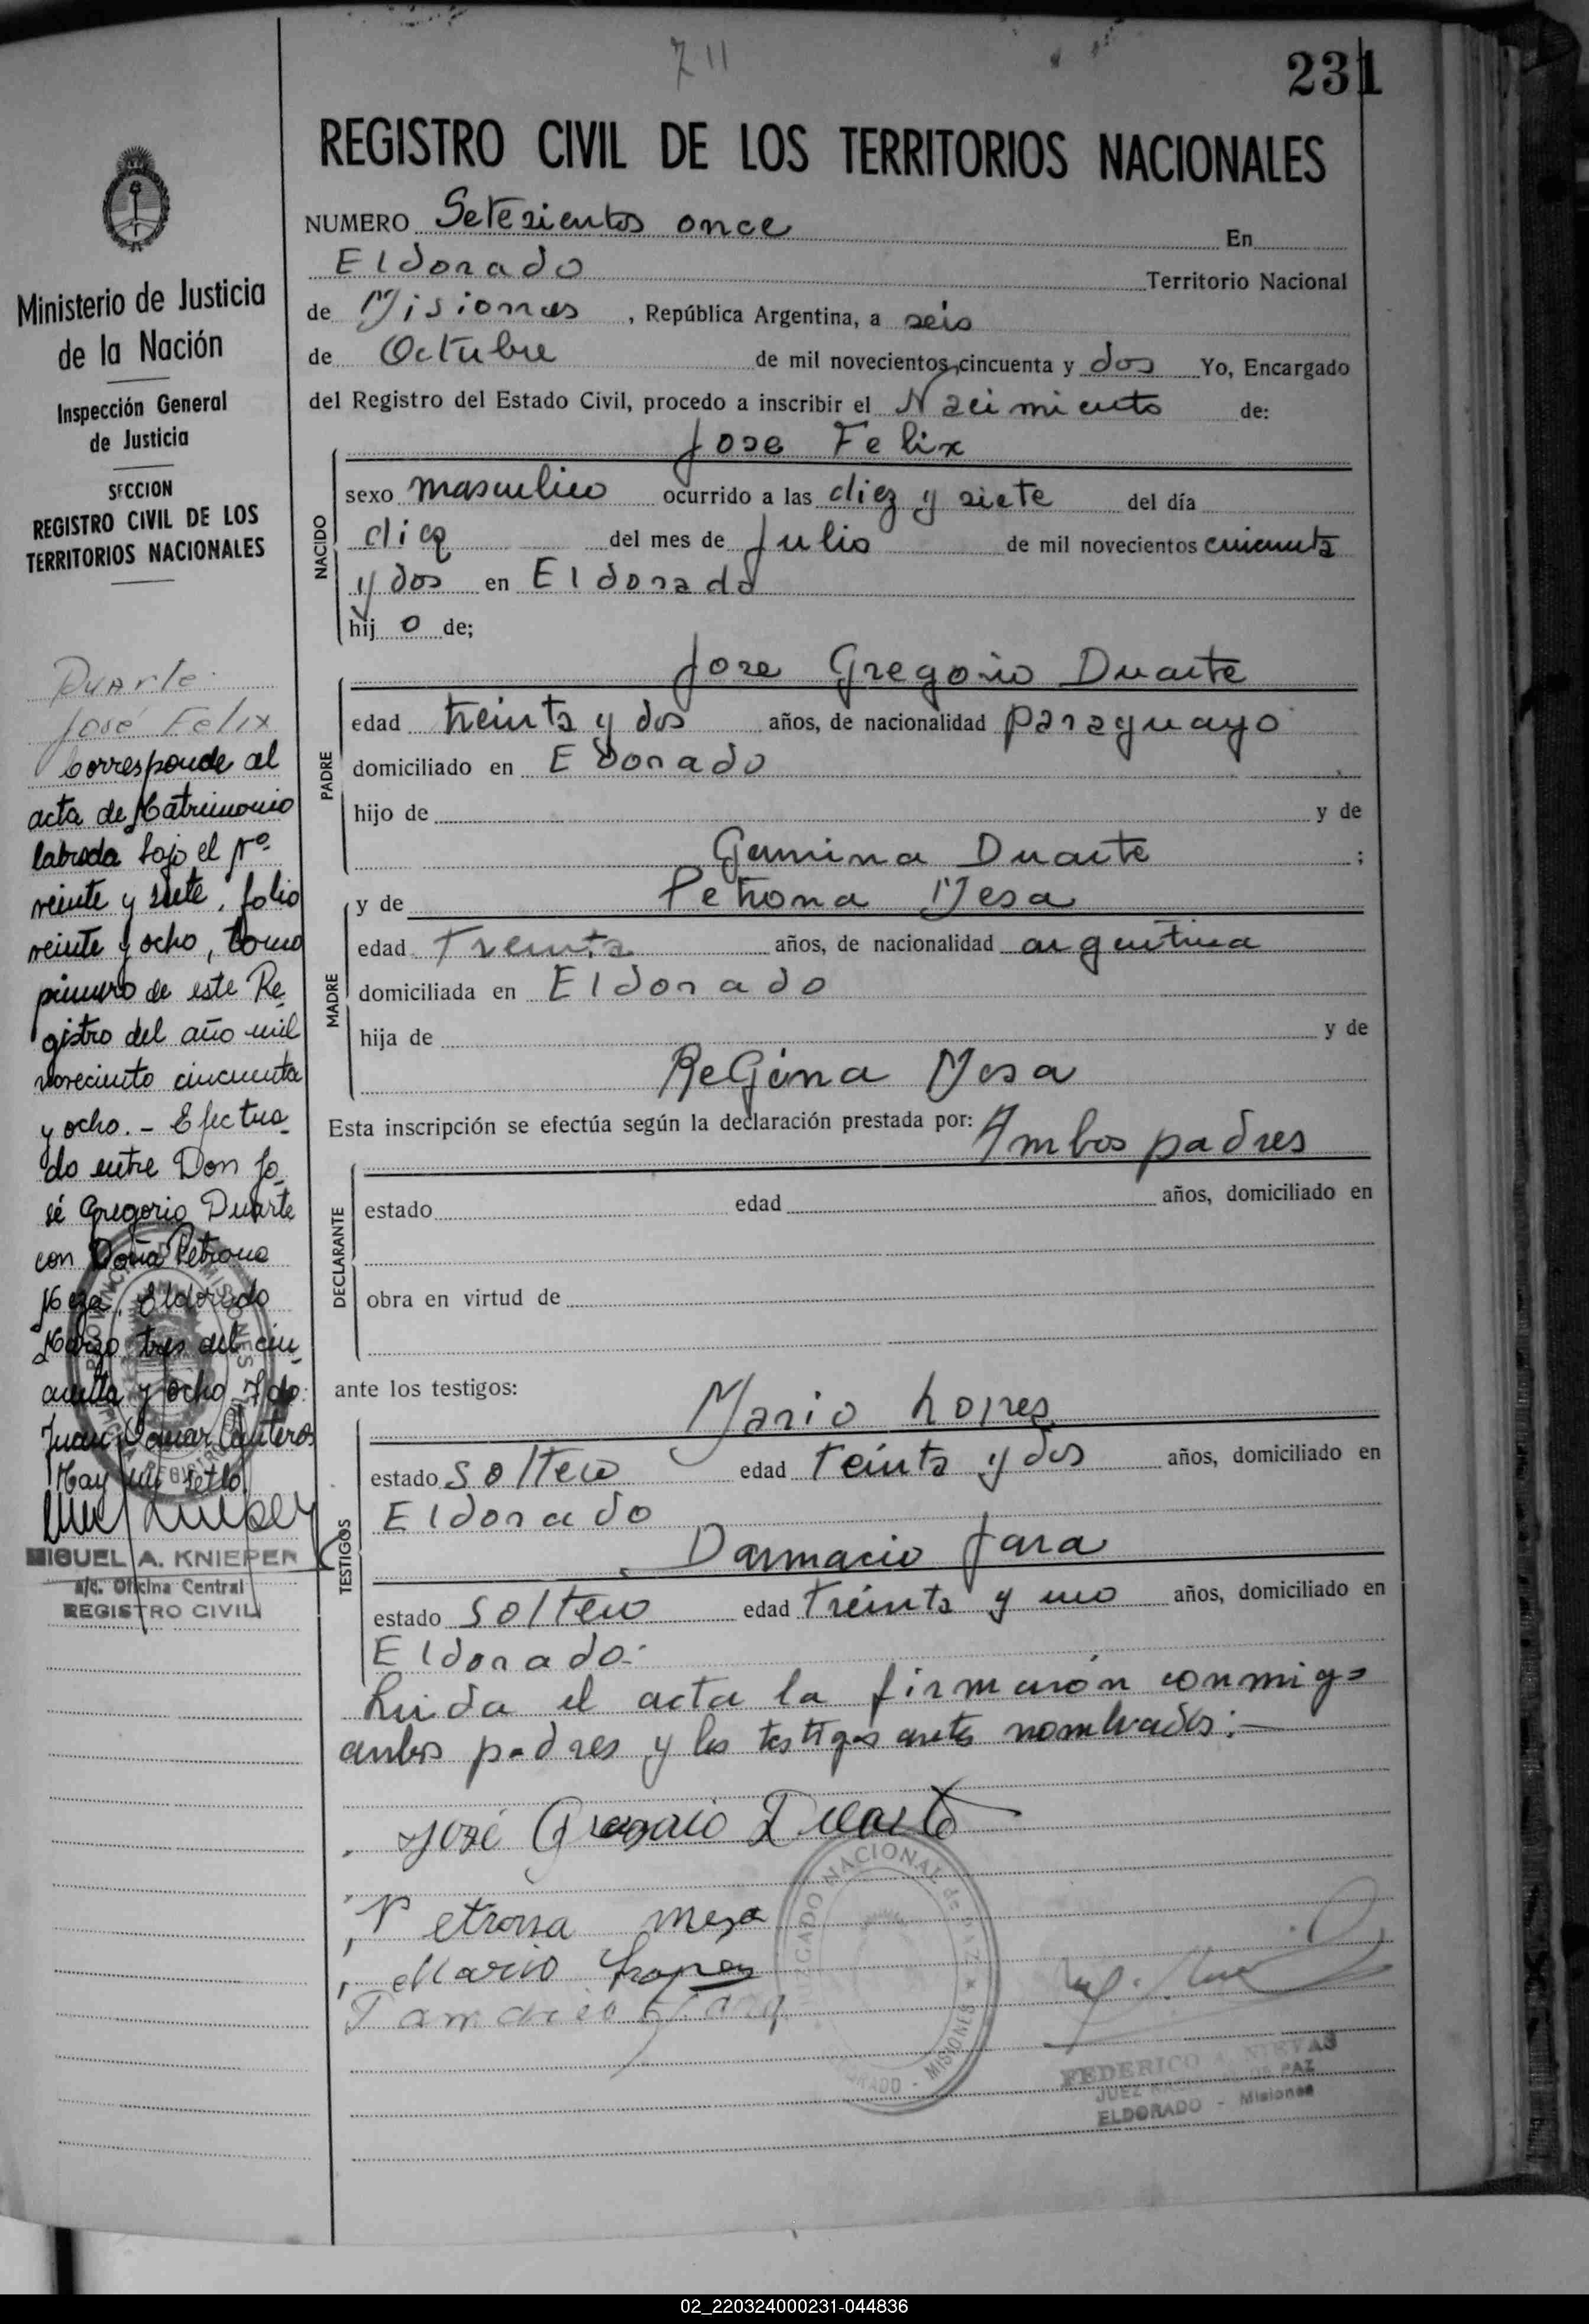 711
231
REGISTRO CIVIL DE LOS TERRITORIOS NACIONALES
NUMERO Setesientos once En
Eldorado Territorio Nacional
de Misiones, República Argentina, a seis
de Octubre de mil novecientos cincuenta y dos Yo, Encargado
del Registro del Estado Civil, procedo a inscribir el Nacimiento de:
Jose Felix
NACIDO
sexo masculino ocurrido a las diez y siete del día
diez del mes de Julio de mil novecientos cincuenta
y dos en Eldorado
hijo de;
Jose Gregorio Duarte
PADRE
edad treinta y dos años, de nacionalidad paraguayo
domiciliado en Eldorado
hijo de y de
Duarte ;
y de Petrona Mesa
MADRE
edad Treinta años, de nacionalidad argentina
domiciliada en Eldorado
hija de y de
Regina Mesa
Esta inscripción se efectúa según la declaración prestada por: Ambos padres
DECLARANTE
estado edad años, domiciliado en
obra en virtud de
ante los testigos:
Mario Lopes
TESTIGOS
estado soltero edad Teinta y dos años, domiciliado en
Eldorado
Darmacio Jara
estado soltero edad Treinta y uno años, domiciliado en
Eldorado.
Leida el acta la firmaron conmigo
ambos padres y los testigos antes nombrados:—
José Gregorio Duarte
Petrona mesa
Mario Lopes
Jara
JUZGADO NACIONAL de PAZ ★ ELDORADO - MISIONES
FEDERICO A. NIEVAS
JUEZ NACIONAL DE PAZ
ELDORADO - Misiones
Ministerio de Justicia
de la Nación
Inspección General
de Justicia
SECCION
REGISTRO CIVIL DE LOS
TERRITORIOS NACIONALES
Duarte
José Felix
Corresponde al
acta de Matrimonio
labrada bajo el Nº
veinte y siete, folio
veinte y ocho, tomo
primero de este Re-
gistro del año mil
novecinto cincuenta
y ocho. - Efectua-
do entre Don Jo-
sé Gregorio Duarte
con Doña Petrona
Meza. Eldorado
Marzo tres del cin-
cuenta y ocho. Fdo:
Juan Omar Canteros
Hay un sello
MIGUEL A. KNIEPER
a/c. Oficina Central
REGISTRO CIVIL
02_220324000231-044836